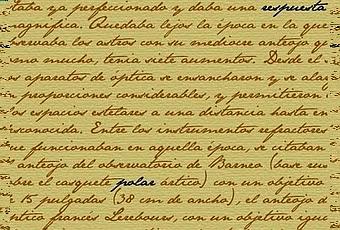 taba ya perfeccionado y daba una respuesta
agnífica. Quedaba lejos la época en la que
servaba los astros con su mediocre anteojo q
mo mucho, tenía siete aumentos. Desde el
os aparatos de óptica se ensancharon y se ala
n proporciones considerables, y permitieron
los espacios estelares a una distancia hasta en
sconocida. Entre los instrumentos refractores
ue funcionaban en aquella época, se citaban
anteojo del observatorio de Barneo (base rus
bre el casquete polar ártico) con un objetivo
e 15 pulgadas (38 cm de ancho), el anteojo d
ntico francés Lerebours, con un objetivo igua